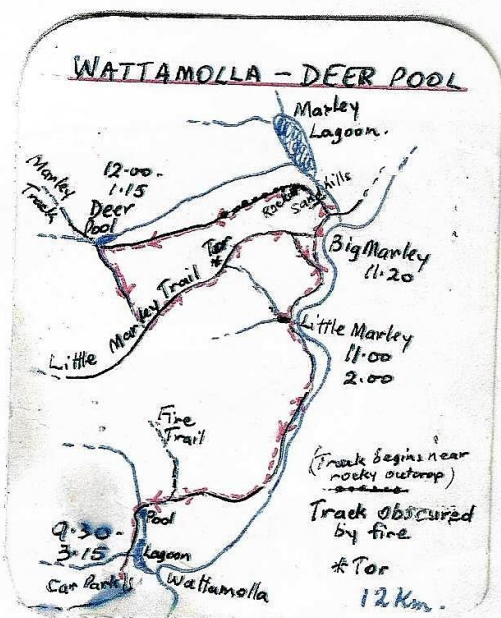 WATTAMOLLA - DEER POOL
Marley
Lagoon.
Marley
Track
12.00.
1.15
Deer
Pool
Rocks
Sandhills
Tor
*
Big Marley
11.20
Little Marley Trail
Little Marley
11.00
2.00
Fire
Trail
(Track begins near
rocky outcrop)
Track obscured
by fire
* Tor
12 Km.
Pool
9.30-
3.15
Lagoon
Car Park
Wattamolla